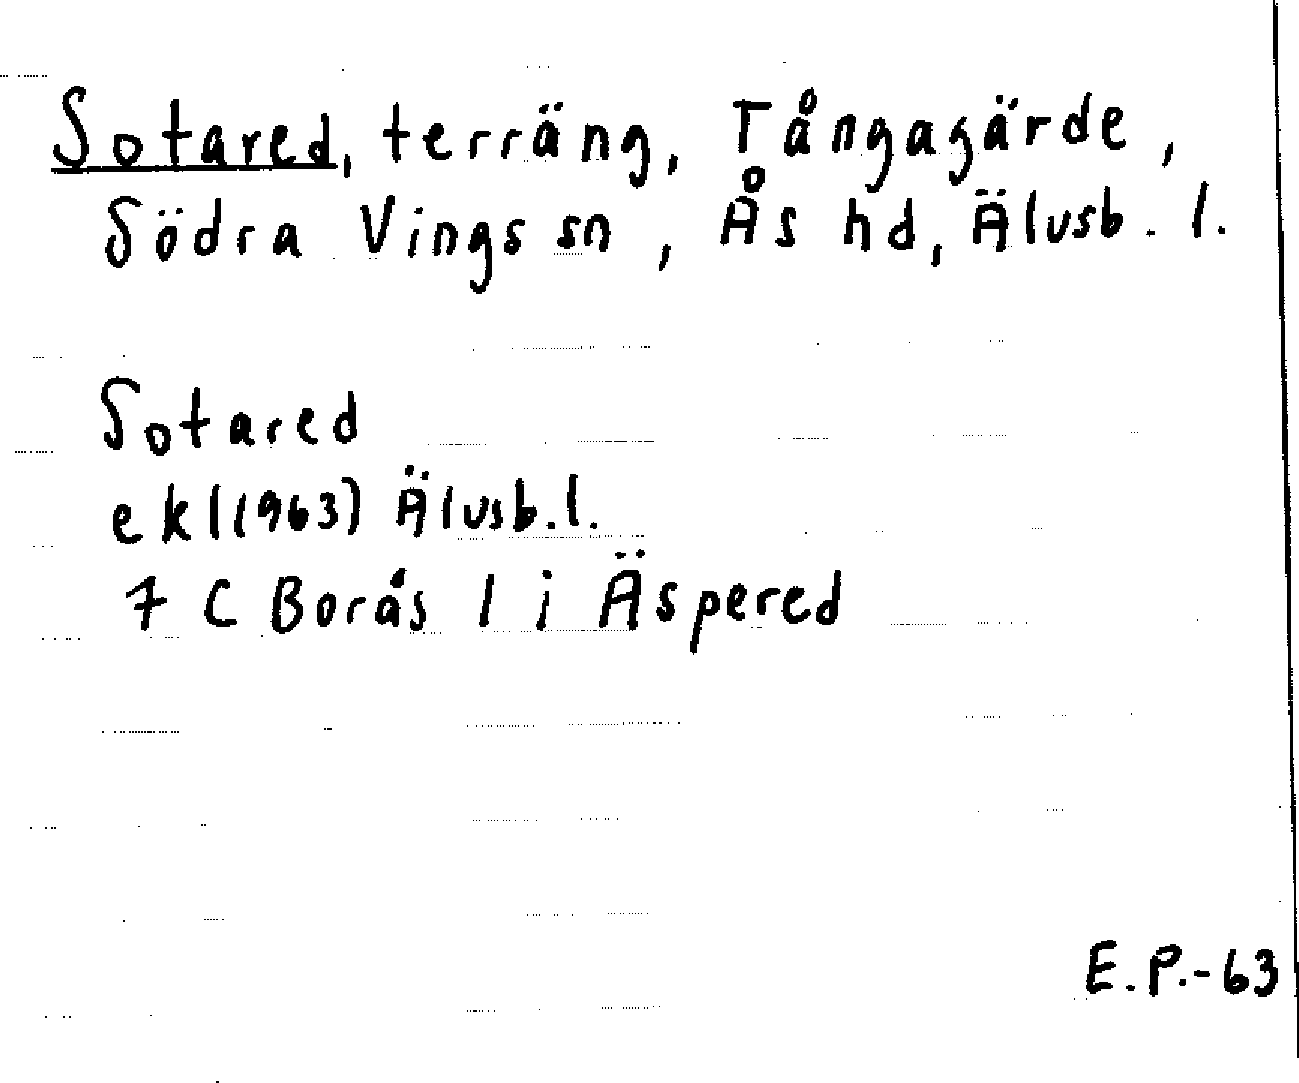 Sotared, terräng, Tångagärde,
Södra Vings sn, Ås hd, Älvsb. l.
Sotared
ekl(1963) Älvsb.l.
7 C Borås l i Äspered
E.P.-63